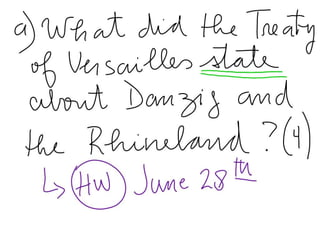 a) What did the Treaty
of Versailles state
about Danzig and
the Rhineland? (4)
↳ HW June 28th